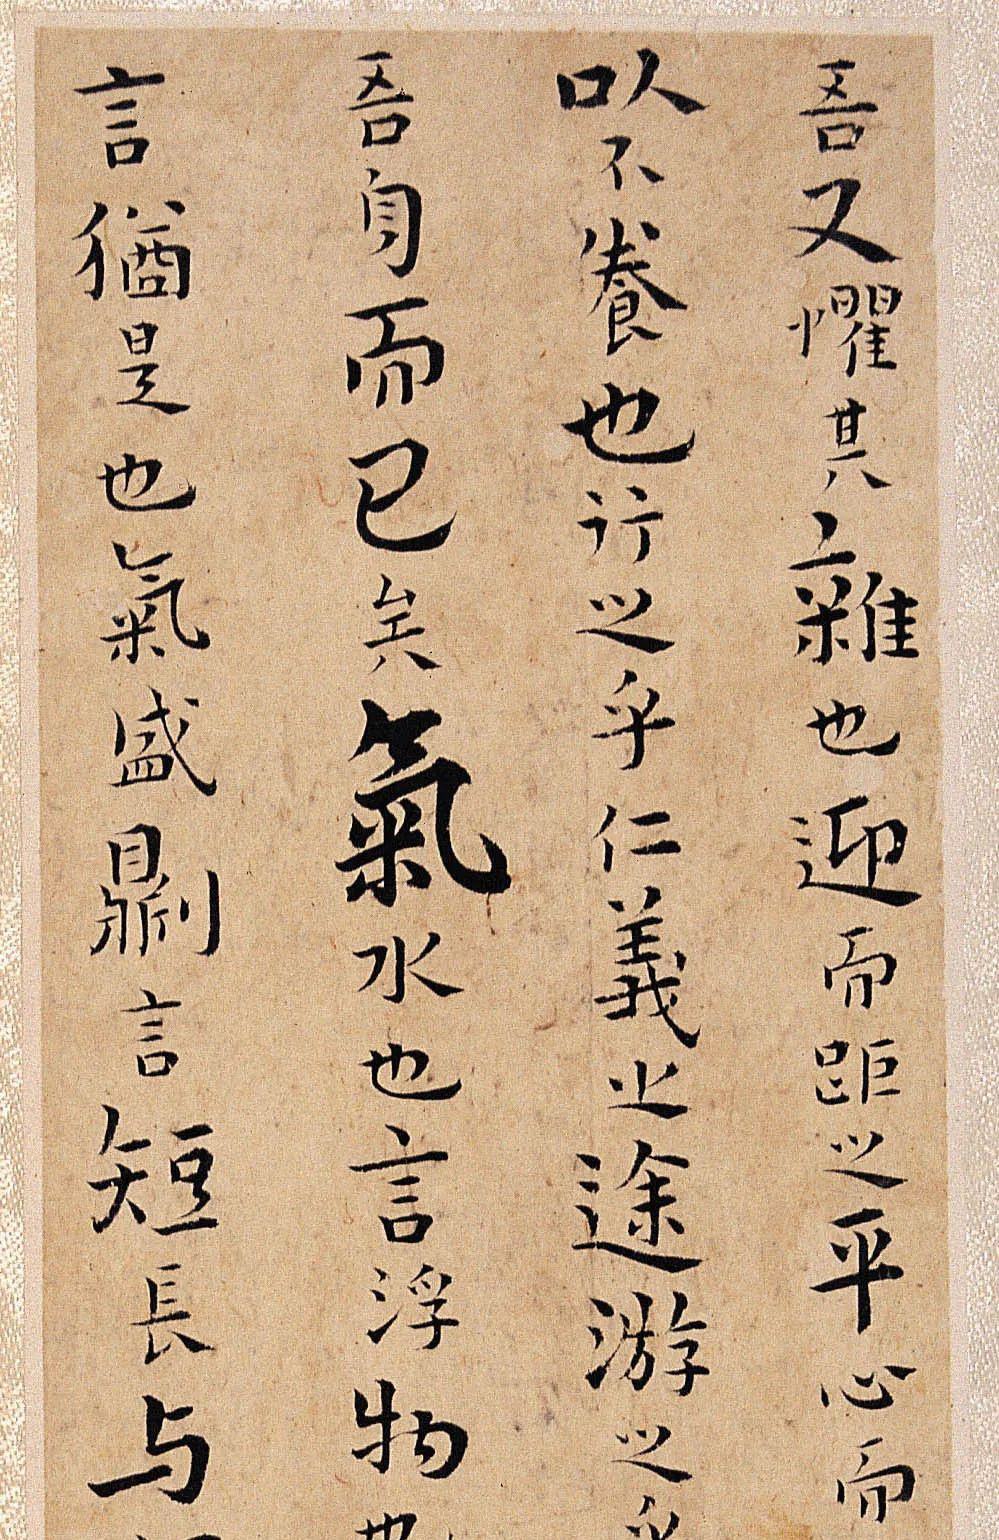 吾又懼其雜也迎而距之平心而
以不養也行之乎仁義之途游之乎
吾身而已矣氣水也言浮物也
言猶是也氣盛則言短長与